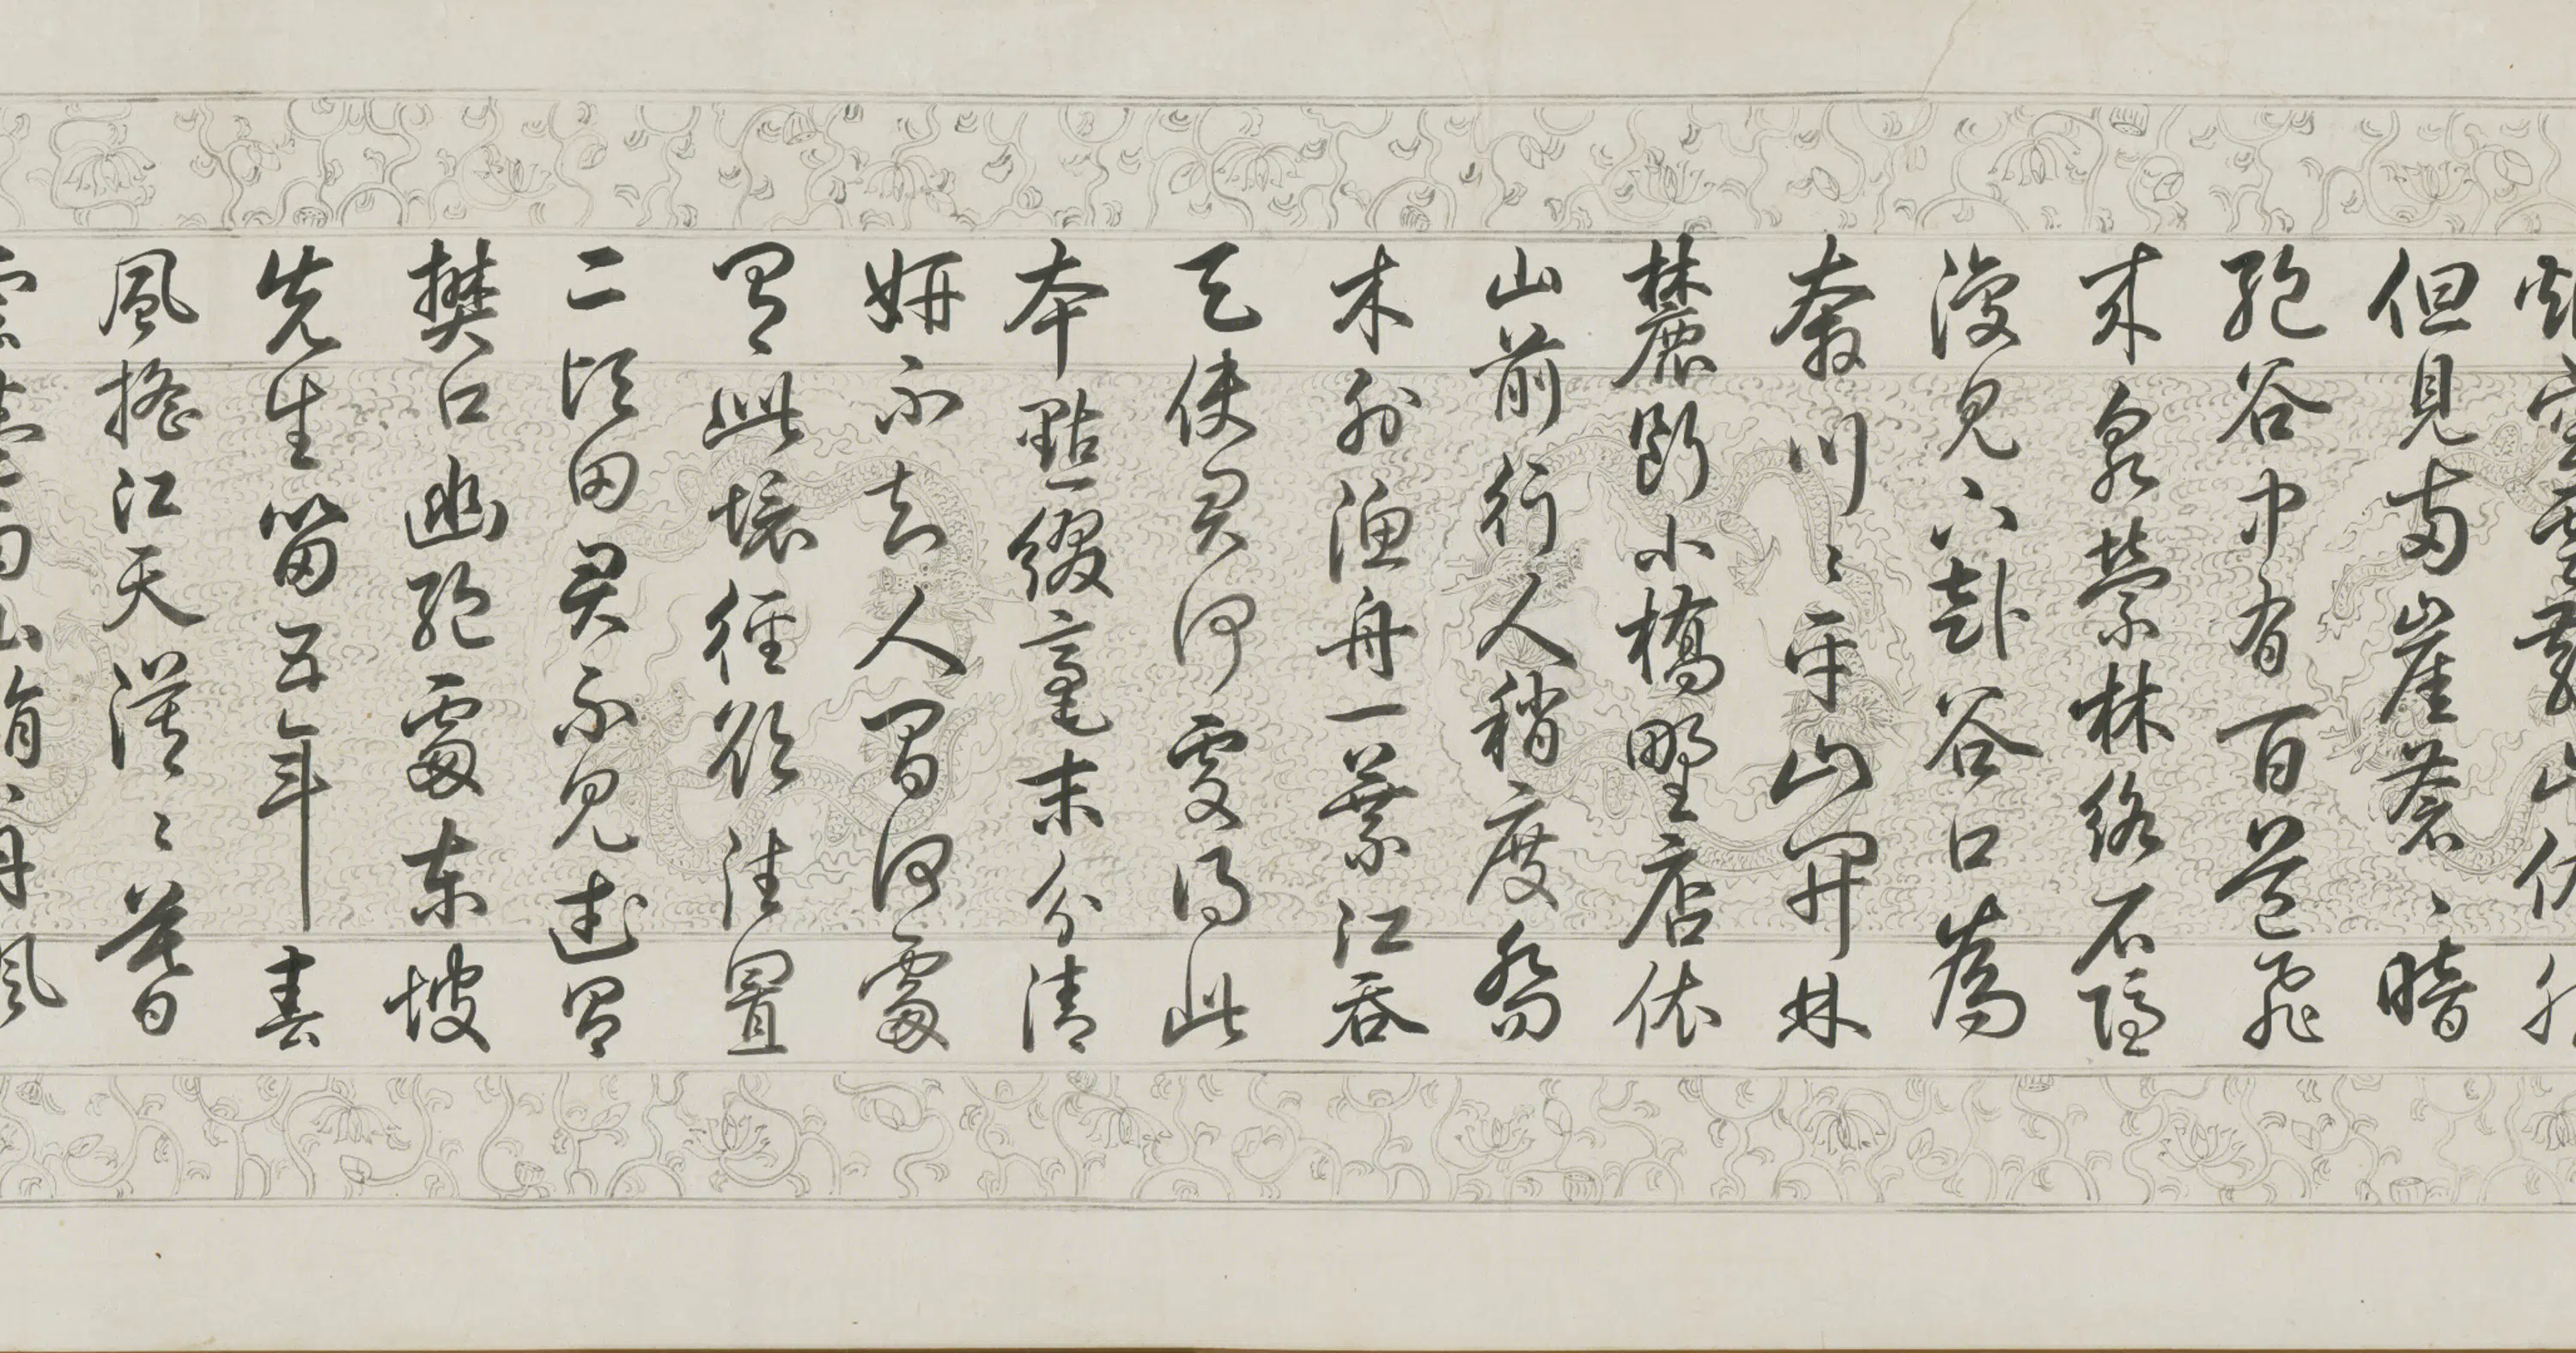 烟空雲散山依然
但見兩崖蒼〻暗
絕谷中有百道飛
来泉縈林絡石隱
復見下赴谷口為
奔川〻平山開林
麓斷小橋野店依
山前行人稍度喬
木外漁舟一葉江吞
天使君何處得此
本點綴毫末分清
妍不知人間何處
有此境徑欲往置
二頃田君不見武昌
樊口幽絕處東坡
先生留五年春
風搖江天漠〻暮
雲卷雨山娟〻丹楓